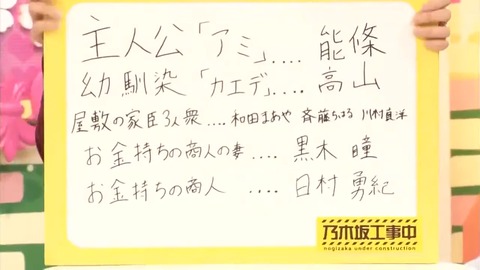 主人公「アミ」.... 能條
幼馴染「カエデ」.... 高山
屋敷の家臣3人衆 .... 和田まあや 斉藤ちはる 川村真洋
お金持ちの商人の妻 .... 黒木 瞳
お金持ちの商人 .... 日村 勇紀
乃木坂工事中
nogizaka under construction